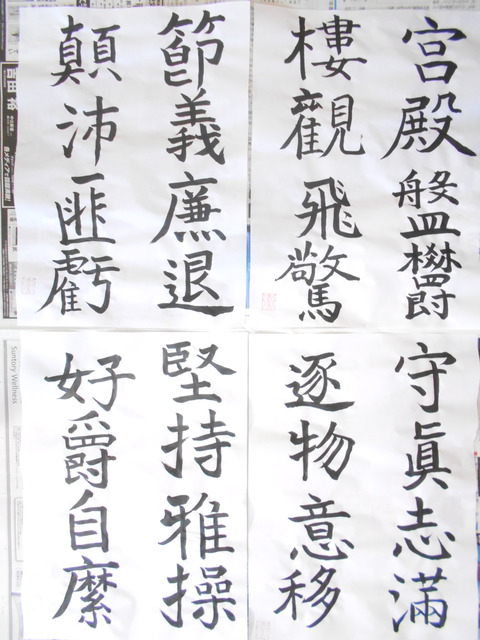 宮殿盤欝
樓觀飛驚
節義廉退
顛沛匪虧
守眞志滿
逐物意移
堅持雅操
好爵自縻
Suntory Wellness